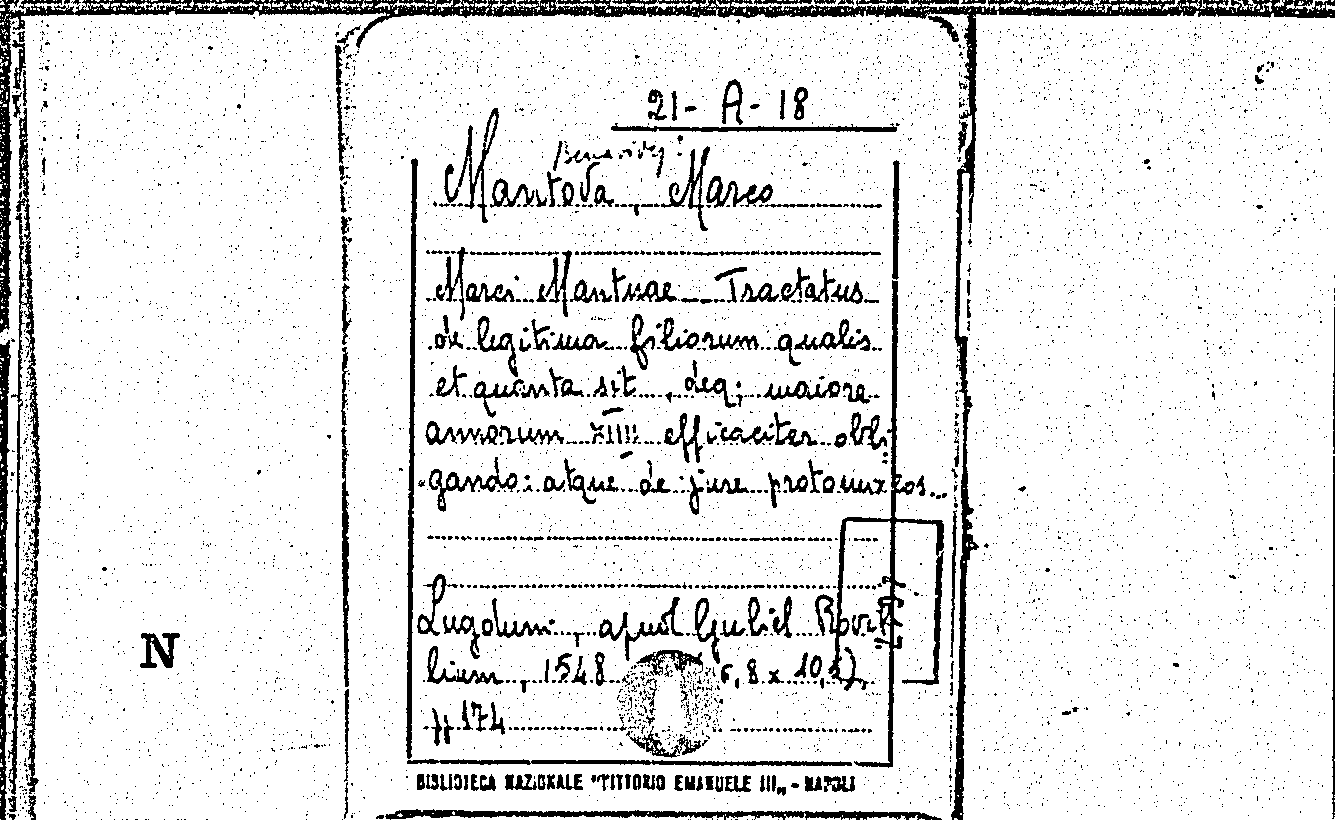 21- A - 18
Benavidez:
Mantova, Marco
Marci Mantuae Tractatus
de legitima filiorum qualis
et quanta sit, deq; maiore
annorum XIIII efficaciter obli
gando: atque de jure protomixeos...
Lugduni, apud Guliel Rovil
lium, 1548 6,8 x 10,5),
pp 174
N
BIBLIOTECA NAZIONALE "VITTORIO EMANUELE III„ - NAPOLI